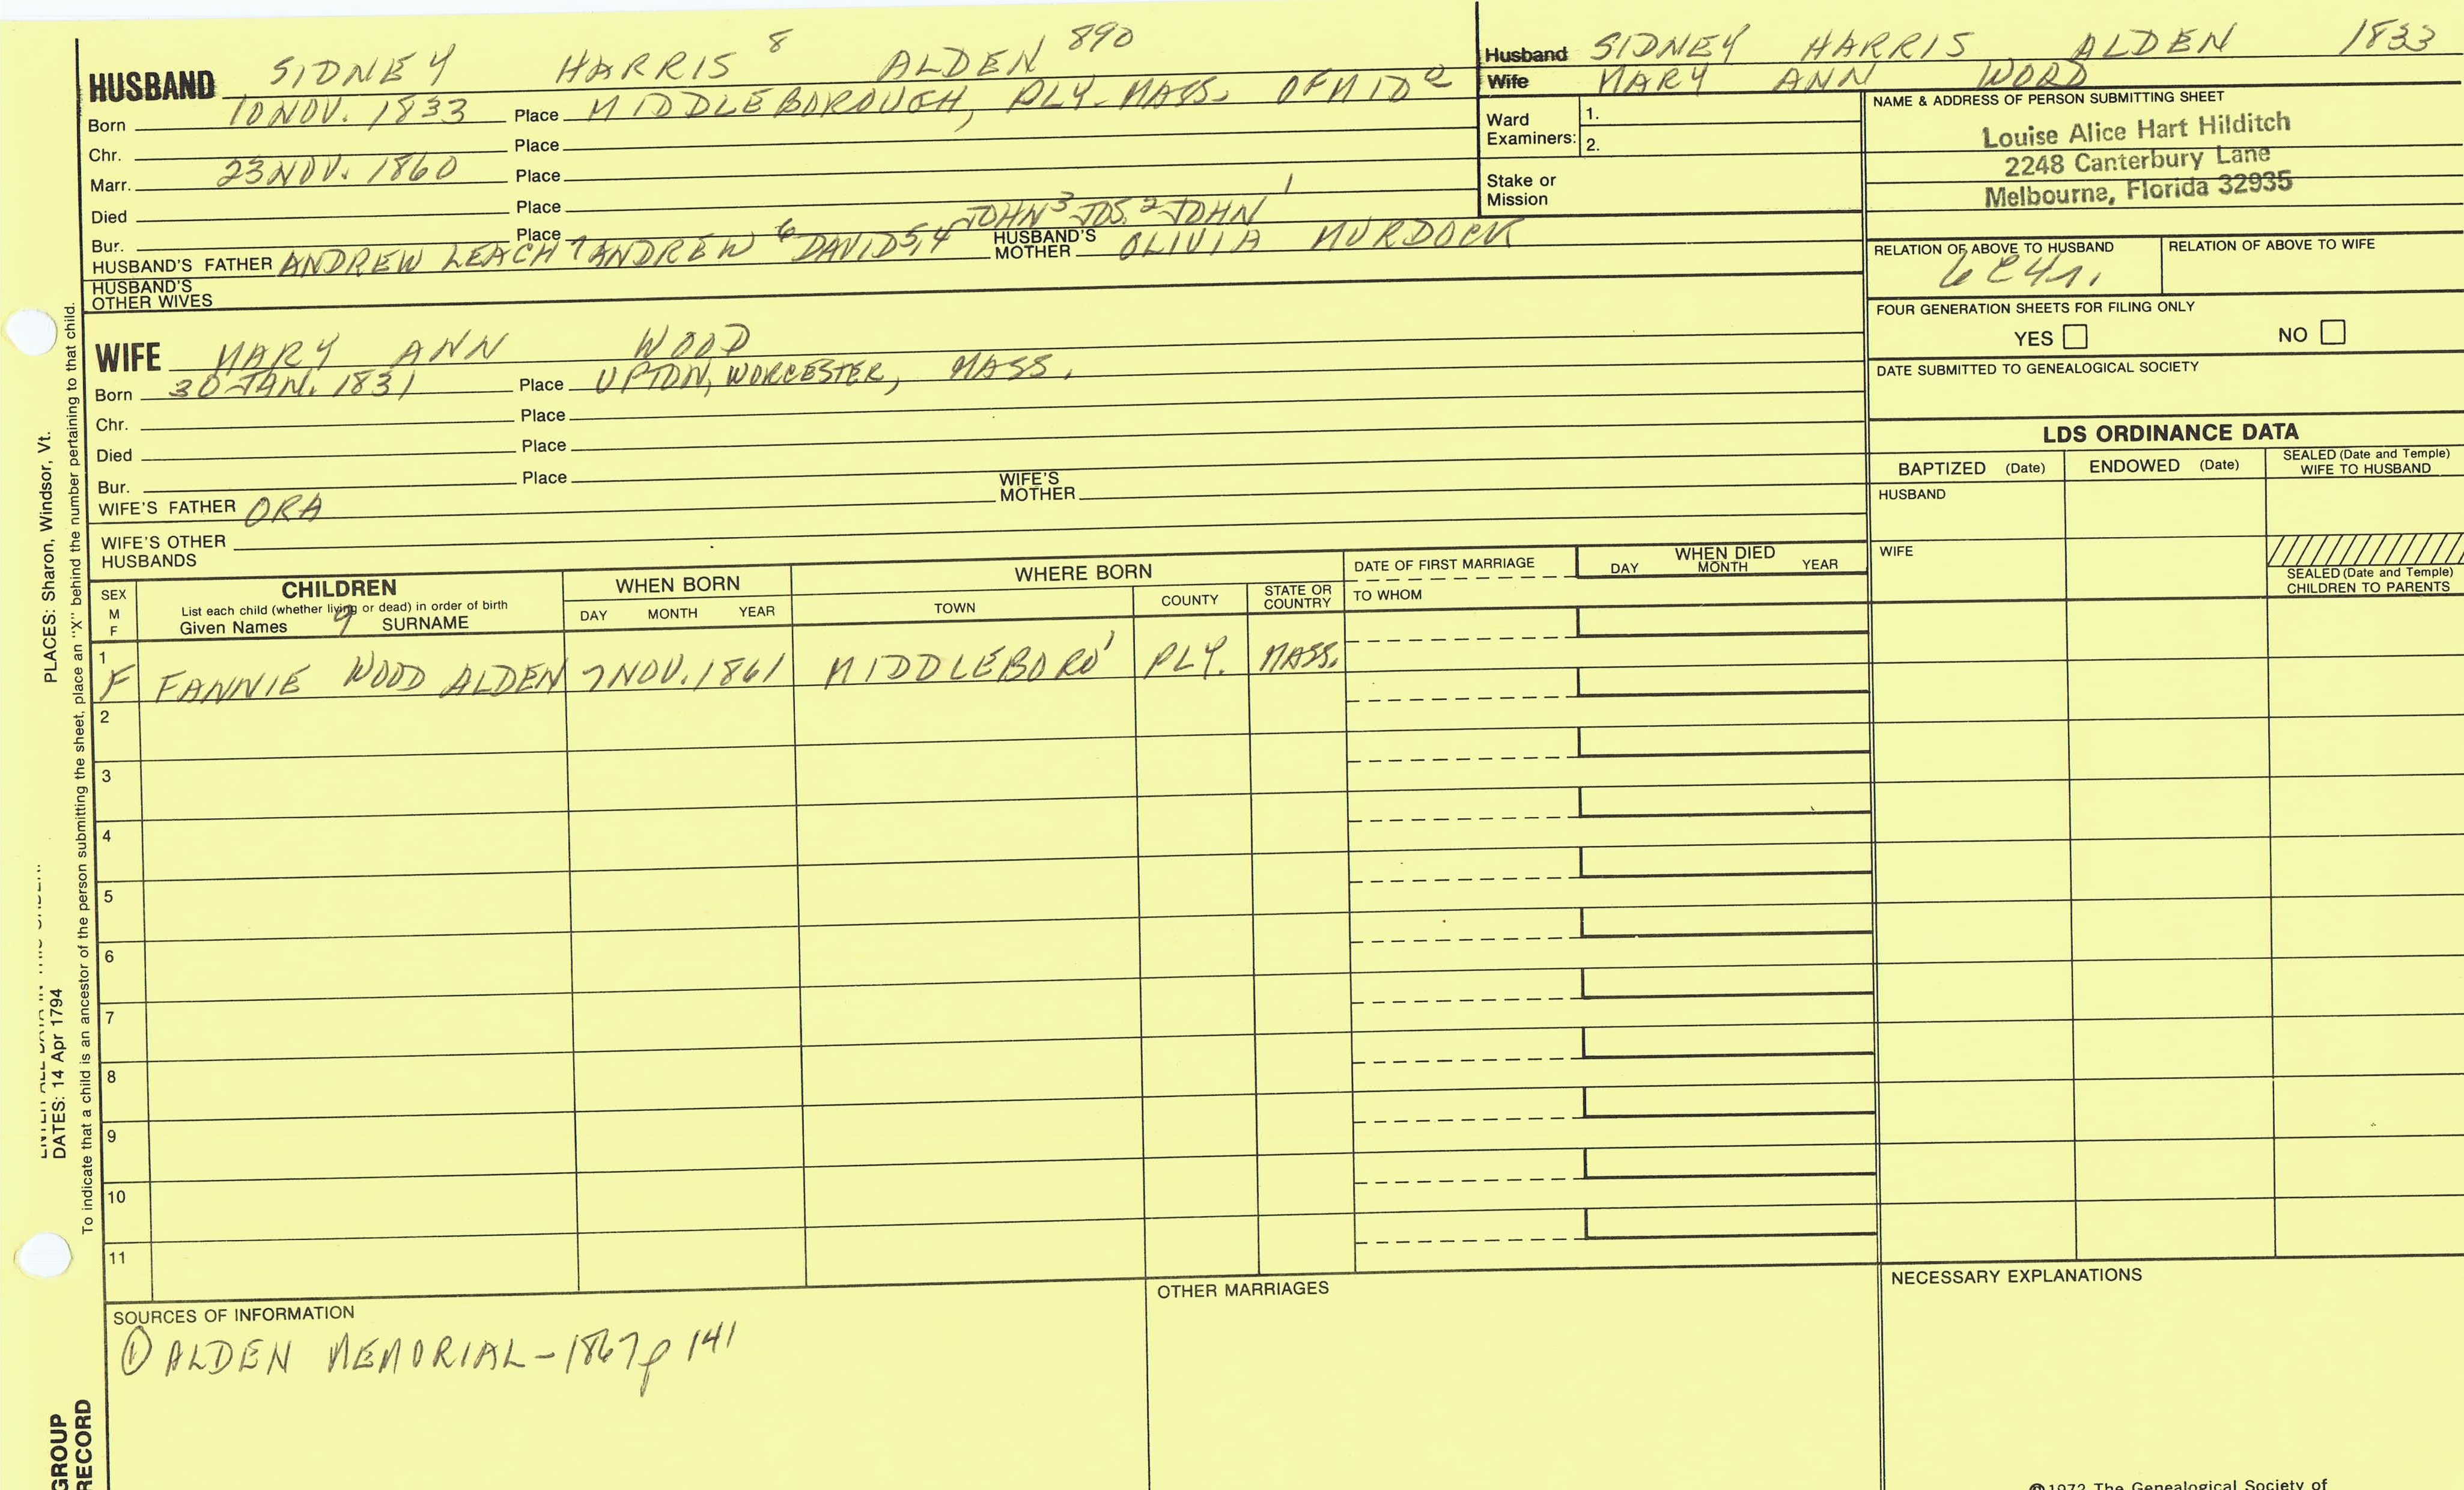 HUSBAND SIDNEY HARRIS 8 ALDEN 890
Born 10 NOV. 1833 Place MIDDLEBOROUGH, PLY. MASS. OF MID
Chr. Place
Marr. 23 NOV. 1860 Place
Died Place
Bur. Place
JOHN 3 JOS. 2 JOHN 1
HUSBAND'S FATHER ANDREW LEACH 7 ANDREW 6 DAVID 5,4 HUSBAND'S MOTHER OLIVIA MURDOCK
HUSBAND'S OTHER WIVES
Husband SIDNEY HARRIS ALDEN 1833
Wife MARY ANN WOOD
Ward Examiners: 1.
2.
Stake or Mission
NAME & ADDRESS OF PERSON SUBMITTING SHEET
Louise Alice Hart Hilditch
2248 Canterbury Lane
Melbourne, Florida 32935
RELATION OF ABOVE TO HUSBAND RELATION OF ABOVE TO WIFE
FOUR GENERATION SHEETS FOR FILING ONLY
YES NO
DATE SUBMITTED TO GENEALOGICAL SOCIETY
WIFE MARY ANN WOOD
Born 30 JAN. 1831 Place UPTON, WORCESTER, MASS.
Chr. Place
Died Place
Bur. Place
WIFE'S FATHER ORA WIFE'S MOTHER
WIFE'S OTHER HUSBANDS
LDS ORDINANCE DATA
BAPTIZED (Date) ENDOWED (Date) SEALED (Date and Temple) WIFE TO HUSBAND
HUSBAND
WIFE
SEALED (Date and Temple) CHILDREN TO PARENTS
SEX M F
CHILDREN
List each child (whether living or dead) in order of birth
Given Names 9 SURNAME
WHEN BORN
DAY MONTH YEAR
WHERE BORN
TOWN COUNTY STATE OR COUNTRY
DATE OF FIRST MARRIAGE
TO WHOM
WHEN DIED
DAY MONTH YEAR
1 F FANNIE WOOD ALDEN 7 NOV. 1861 MIDDLEBORO' PLY. MASS.
2
3
4
5
6
7
8
9
10
11
SOURCES OF INFORMATION
① ALDEN MEMORIAL - 1867 p 141
OTHER MARRIAGES
NECESSARY EXPLANATIONS
©1972 The Genealogical Society of
PLACES: Sharon, Windsor, Vt.
DATES: 14 Apr 1794
To indicate that a child is an ancestor of the person submitting the sheet, place an "X" behind the number pertaining to that child.
GROUP
RECORD